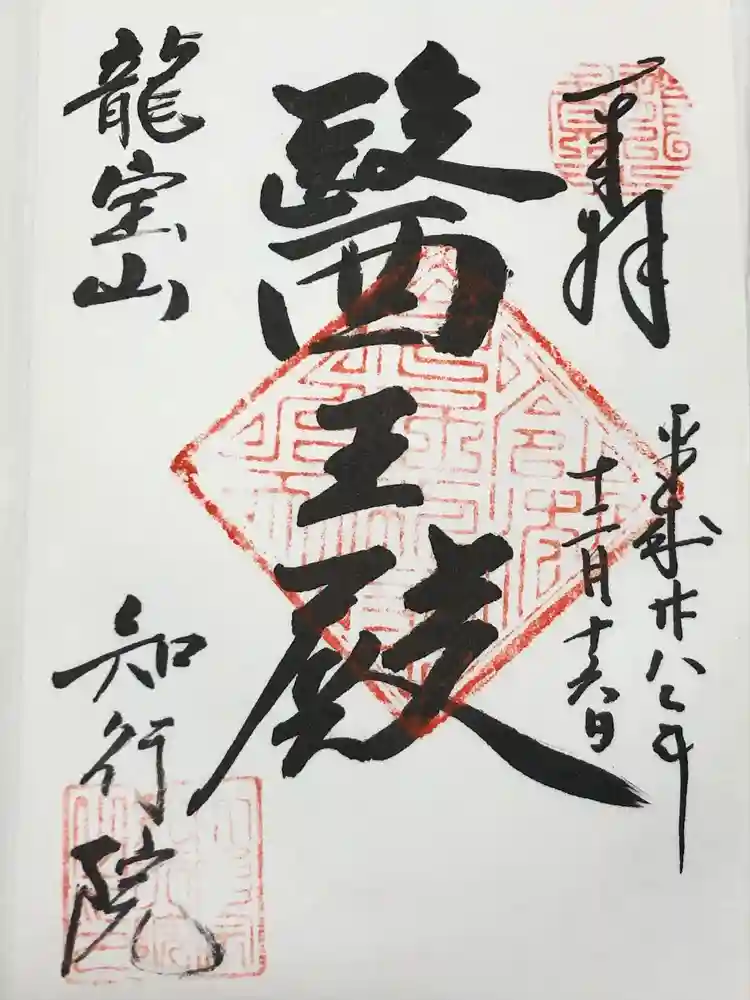 奉拝
平成廾八年
十二月十六日
醫王殿
龍宝山
知行院